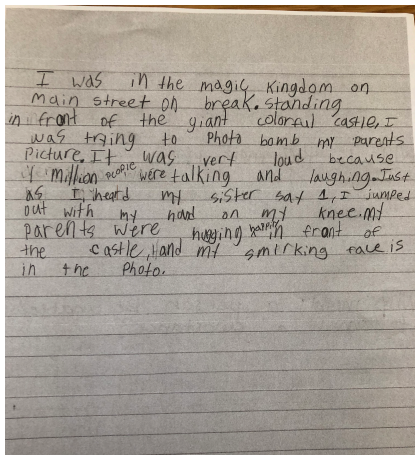 I was in the magic Kingdom on
main street on break. standing
in front of the giant colorful castle, I
was trying to Photo bomb my parents
Picture. It was very loud because
million people were talking and laughing. Just
as I heard my sister say 1, I jumped
out with my hand on my knee. my
parents were hugging happily in front of
the castle, and my smirking face is
in the Photo.